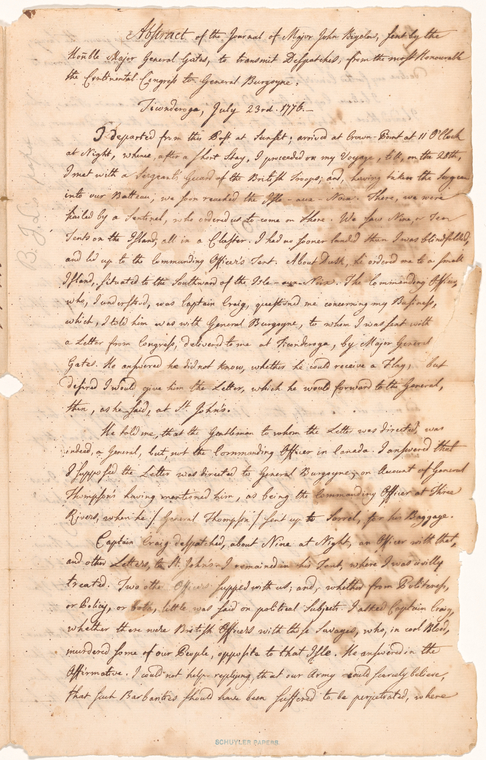 Abstract of the Journal of Major John Bigelow, sent by the
Hon'ble Major General Gates, to transmit Despatches, from the most Honourable
the Continental Congress to General Burgoyne.
Ticonderoga, July 23rd. 1776.
I departed from this Post at Sunset, arrived at Crown-Point at 11 O'Clock
at Night, where, after a short Stay, I proceeded on my Voyage, till, on the 25th,
I met with a Sergeant's guard of the British Troops; and, having taken the Sergeant
into our Batteau, we soon reached the Isle-aux-Noix. There, we were
hailed by a Sentinel, who ordered us to come on Shore. We saw Nine or Ten
Tents on the Island, all in a Cluster. I had no sooner landed than I was blindfolded,
and led up to the Commanding Officer's Tent. About Dusk, he ordered me to a small
Island, situated to the Southward of the Isle-aux-Noix. The Commanding Officer,
who, I understood, was Captain Craig, questioned me concerning my Business,
which, I told him was with General Burgoyne, to whom I was sent with
a Letter from Congress, delivered to me at Ticonderoga, by Major General
Gates. He answered he did not know, whether he could receive a Flag; but
desired I would give him the Letter, which he would forward to the General,
then, as he said, at St. John's.
He told me, that the Gentleman to whom the Letter was directed, was
indeed, a General, but not the Commanding Officer in Canada. I answered that
I supposed the Letter was directed to General Burgoyne, on Account of General
Thompson's having mentioned him, as being the Commanding Officer at Three
Rivers, when he [General Thompson] sent up to Sorrel, for his Baggage.
Captain Craig despatched, about Nine at Night, an Officer with that,
and other Letters, to St. John's. I remained in his Tent, where I was civilly
treated. Two other Officers supped with us; and, whether from Politeness,
or Policy, or both, little was said on political Subjects. I asked Captain Craig,
whether there were British Officers with those Savages, who, in cool Blood,
murdered some of our People, opposite to that Isle. He answered in the
Affirmative. I could not help replying, that our Army could scarcely believe,
that such Barbarities should have been suffered to be perpetrated, where
SCHUYLER PAPERS